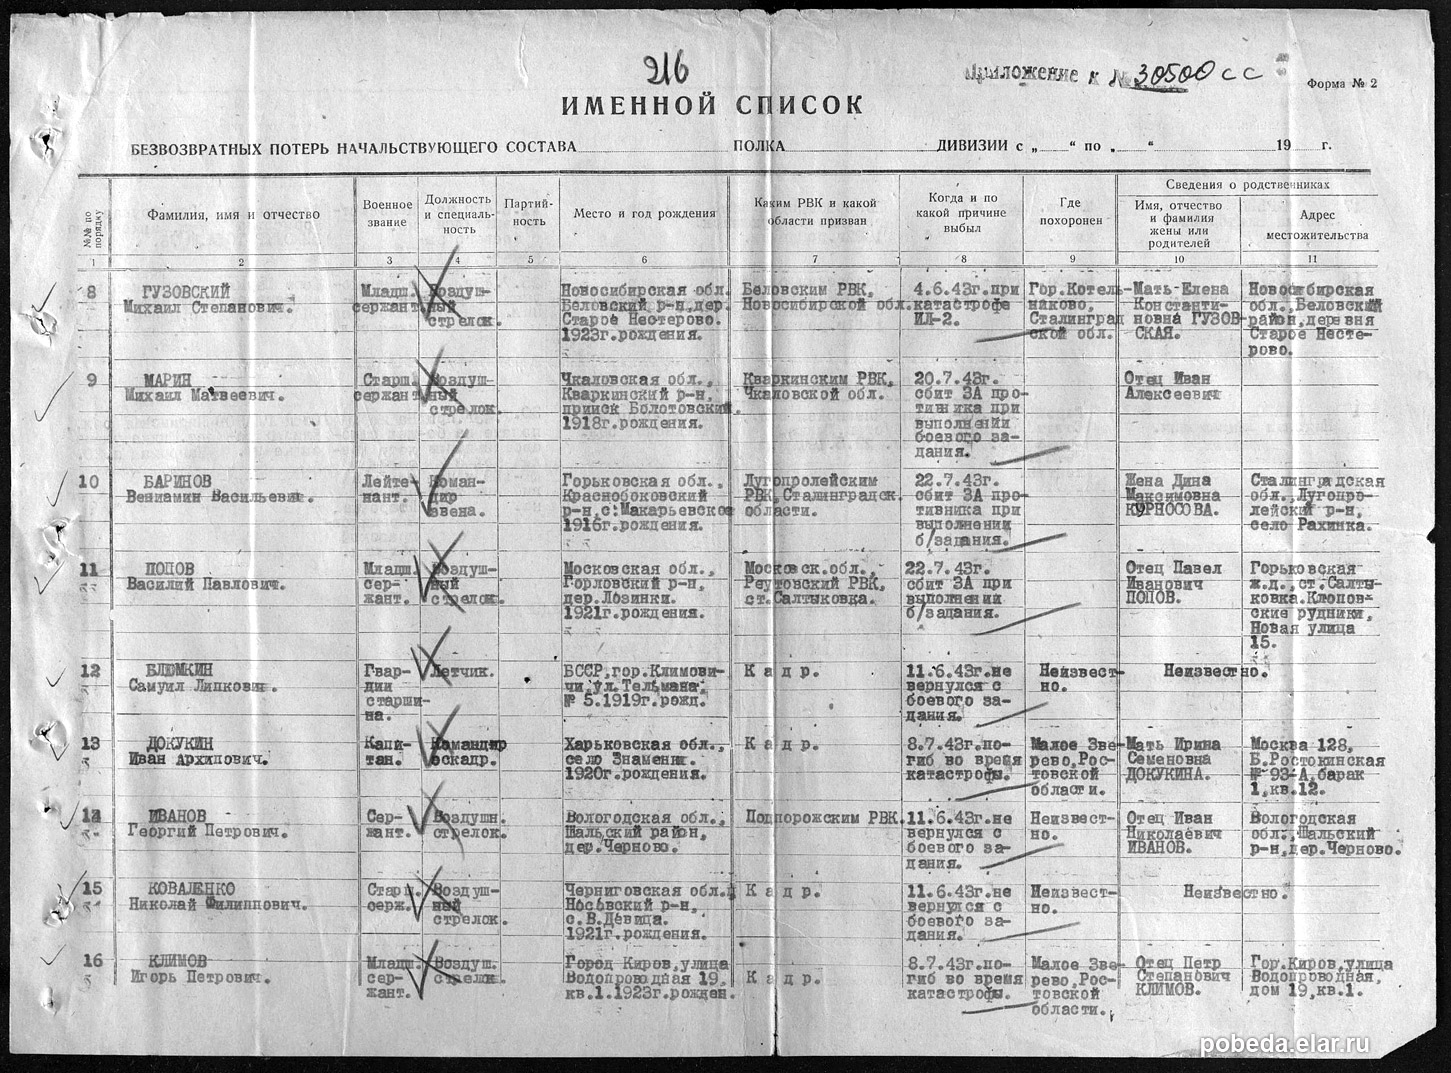 216
Приложение к № 30500 сс
Форма № 2
ИМЕННОЙ СПИСОК
БЕЗВОЗВРАТНЫХ ПОТЕРЬ НАЧАЛЬСТВУЮЩЕГО СОСТАВА ПОЛКА ДИВИЗИИ с „ “ по „ “ 19 г.
№№ по порядку
Фамилия, имя и отчество
Военное звание
Должность и специаль-
ность
Партий-
ность
Место и год рождения
Каким РВК и какой
области призван
Когда и по
какой причине
выбыл
Где
похоронен
Сведения о родственниках
Имя, отчество
и фамилия
жены или
родителей
Адрес
местожительства
1 2 3 4 5 6 7 8 9 10 11
8 ГУЗОВСКИЙ Младш. Воздуш- Новосибирская обл. Беловским РВК, 4.6.43г.при Гор.Котель- Мать-Елена Новосибирская
Михаил Степанович. сержант ный Беловский р-н,дер. Новосибирской обл. катастрофе никово, Констянти- обл.,Беловский
стрелок. Старое Нестерово. ИЛ-2. Сталинград новна ГУЗОВ- район,деревня
1923г.рождения. ской обл. СКАЯ. Старое Несте-
рово.
9 МАРИН Старш. Воздуш- Чкаловская обл., Кваркинским РВК, 20.7.43г. Отец Иван
Михаил Матвеевич. сержант ный Кваркинский р-н, Чкаловской обл. сбит ЗА про- Алексеевич
стрелок. прииск Болотовский. тивника при
1918г.рождения. выполнении
боевого за-
дания.
10 БАРИНОВ Лейте- Коман- Горьковская обл., Лугопролейским 22.7.43г. Жена Дина Сталинградская
Вениамин Васильевич. нант. дир Краснобоковский РВК,Сталинградск. сбит ЗА про- Максимовна обл.,Лугопро-
звена. р-н,с.Макарьевское области. тивника при КУРНОСОВА. лейский р-н,
1916г.рождения. выполнении село Рахинка.
б/задания.
11 ПОПОВ Младш. Воздуш- Московская обл., Московск.обл., 22.7.43г. Отец Павел Горьковская
Василий Павлович. сер- ный Горловский р-н, Реутовский РВК, сбит ЗА при Иванович ж.д.,ст.Салты-
жант. стрелок. дер.Лозинки. ст.Салтыковка. выполнении ПОПОВ. ковка.Клопов-
1921г.рождения. б/задания. ские рудники,
Новая улица
15.
12 БЛЮМКИН Гвар- Летчик. БССР,гор.Климови- Кадр. 11.6.43г.не Неизвест- Неизвестно.
Самуил Липкович. дии чи,ул.Тельмана, вернулся с но.
старши- № 5.1919г.рожд. боевого за-
на. дания.
13 ДОКУКИН Капи- Командир Харьковская обл., Кадр. 8.7.43г.по- Малое Зве- Мать Ирина Москва 128,
Иван Архипович. тан. эскадр. село Знамени. гиб во время рево,Рос- Семеновна Б.Ростокинская
1920г.рождения. катастрофы. товской ДОКУКИНА. № 93-А,барак
области. 1,кв.12.
14 ИВАНОВ Сер- Воздушн. Вологодская обл., Подпорожским РВК. 11.6.43г.не Неизвест- Отец Иван Вологодская
Георгий Петрович. жант. стрелок. Шальский район, вернулся с но. Николаевич обл.,Шальский
дер.Черново. боевого за- ИВАНОВ. р-н,дер.Черново.
дания.
15 КОВАЛЕНКО Старш. Воздуш- Черниговская обл., Кадр. 11.6.43г.не Неизвест- Неизвестно.
Николай Филиппович. серж. ный Носовский р-н, вернулся с но.
стрелок. с.В.Девица. боевого за-
1921г.рождения. дания.
16 КЛИМОВ Младш. Воздуш. Город Киров,улица 8.7.43г.по- Малое Зве- Отец Петр Гор.Киров,улица
Игорь Петрович. сер- стрелок. Водопроводная 19, Кадр. гиб во время рево,Рос- Степанович Водопроводная,
жант. кв.1.1923г.рожден. катастрофы. товской КЛИМОВ. дом 19,кв.1.
области.
pobeda.elar.ru